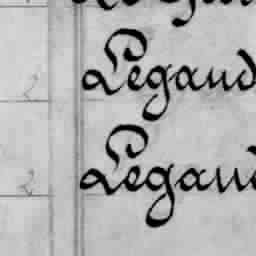 2 Legaud
2 Legaud